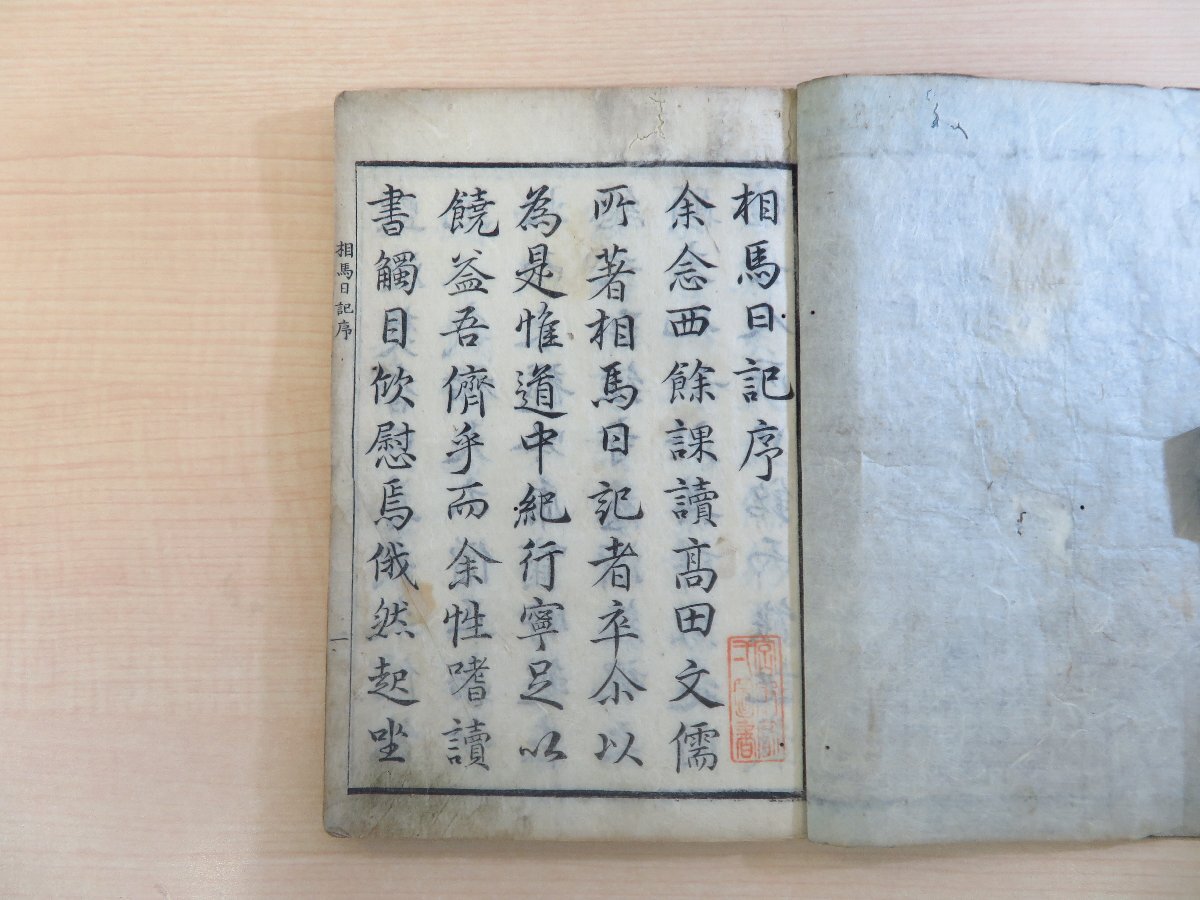 相馬日記序
余念西餘課讀髙田文儒
所著相馬日記者卒尒以
為是惟道中紀行寧足以
饒益吾儕乎而余性嗜讀
書觸目欣慰焉俄然起坐
相馬日記序
一